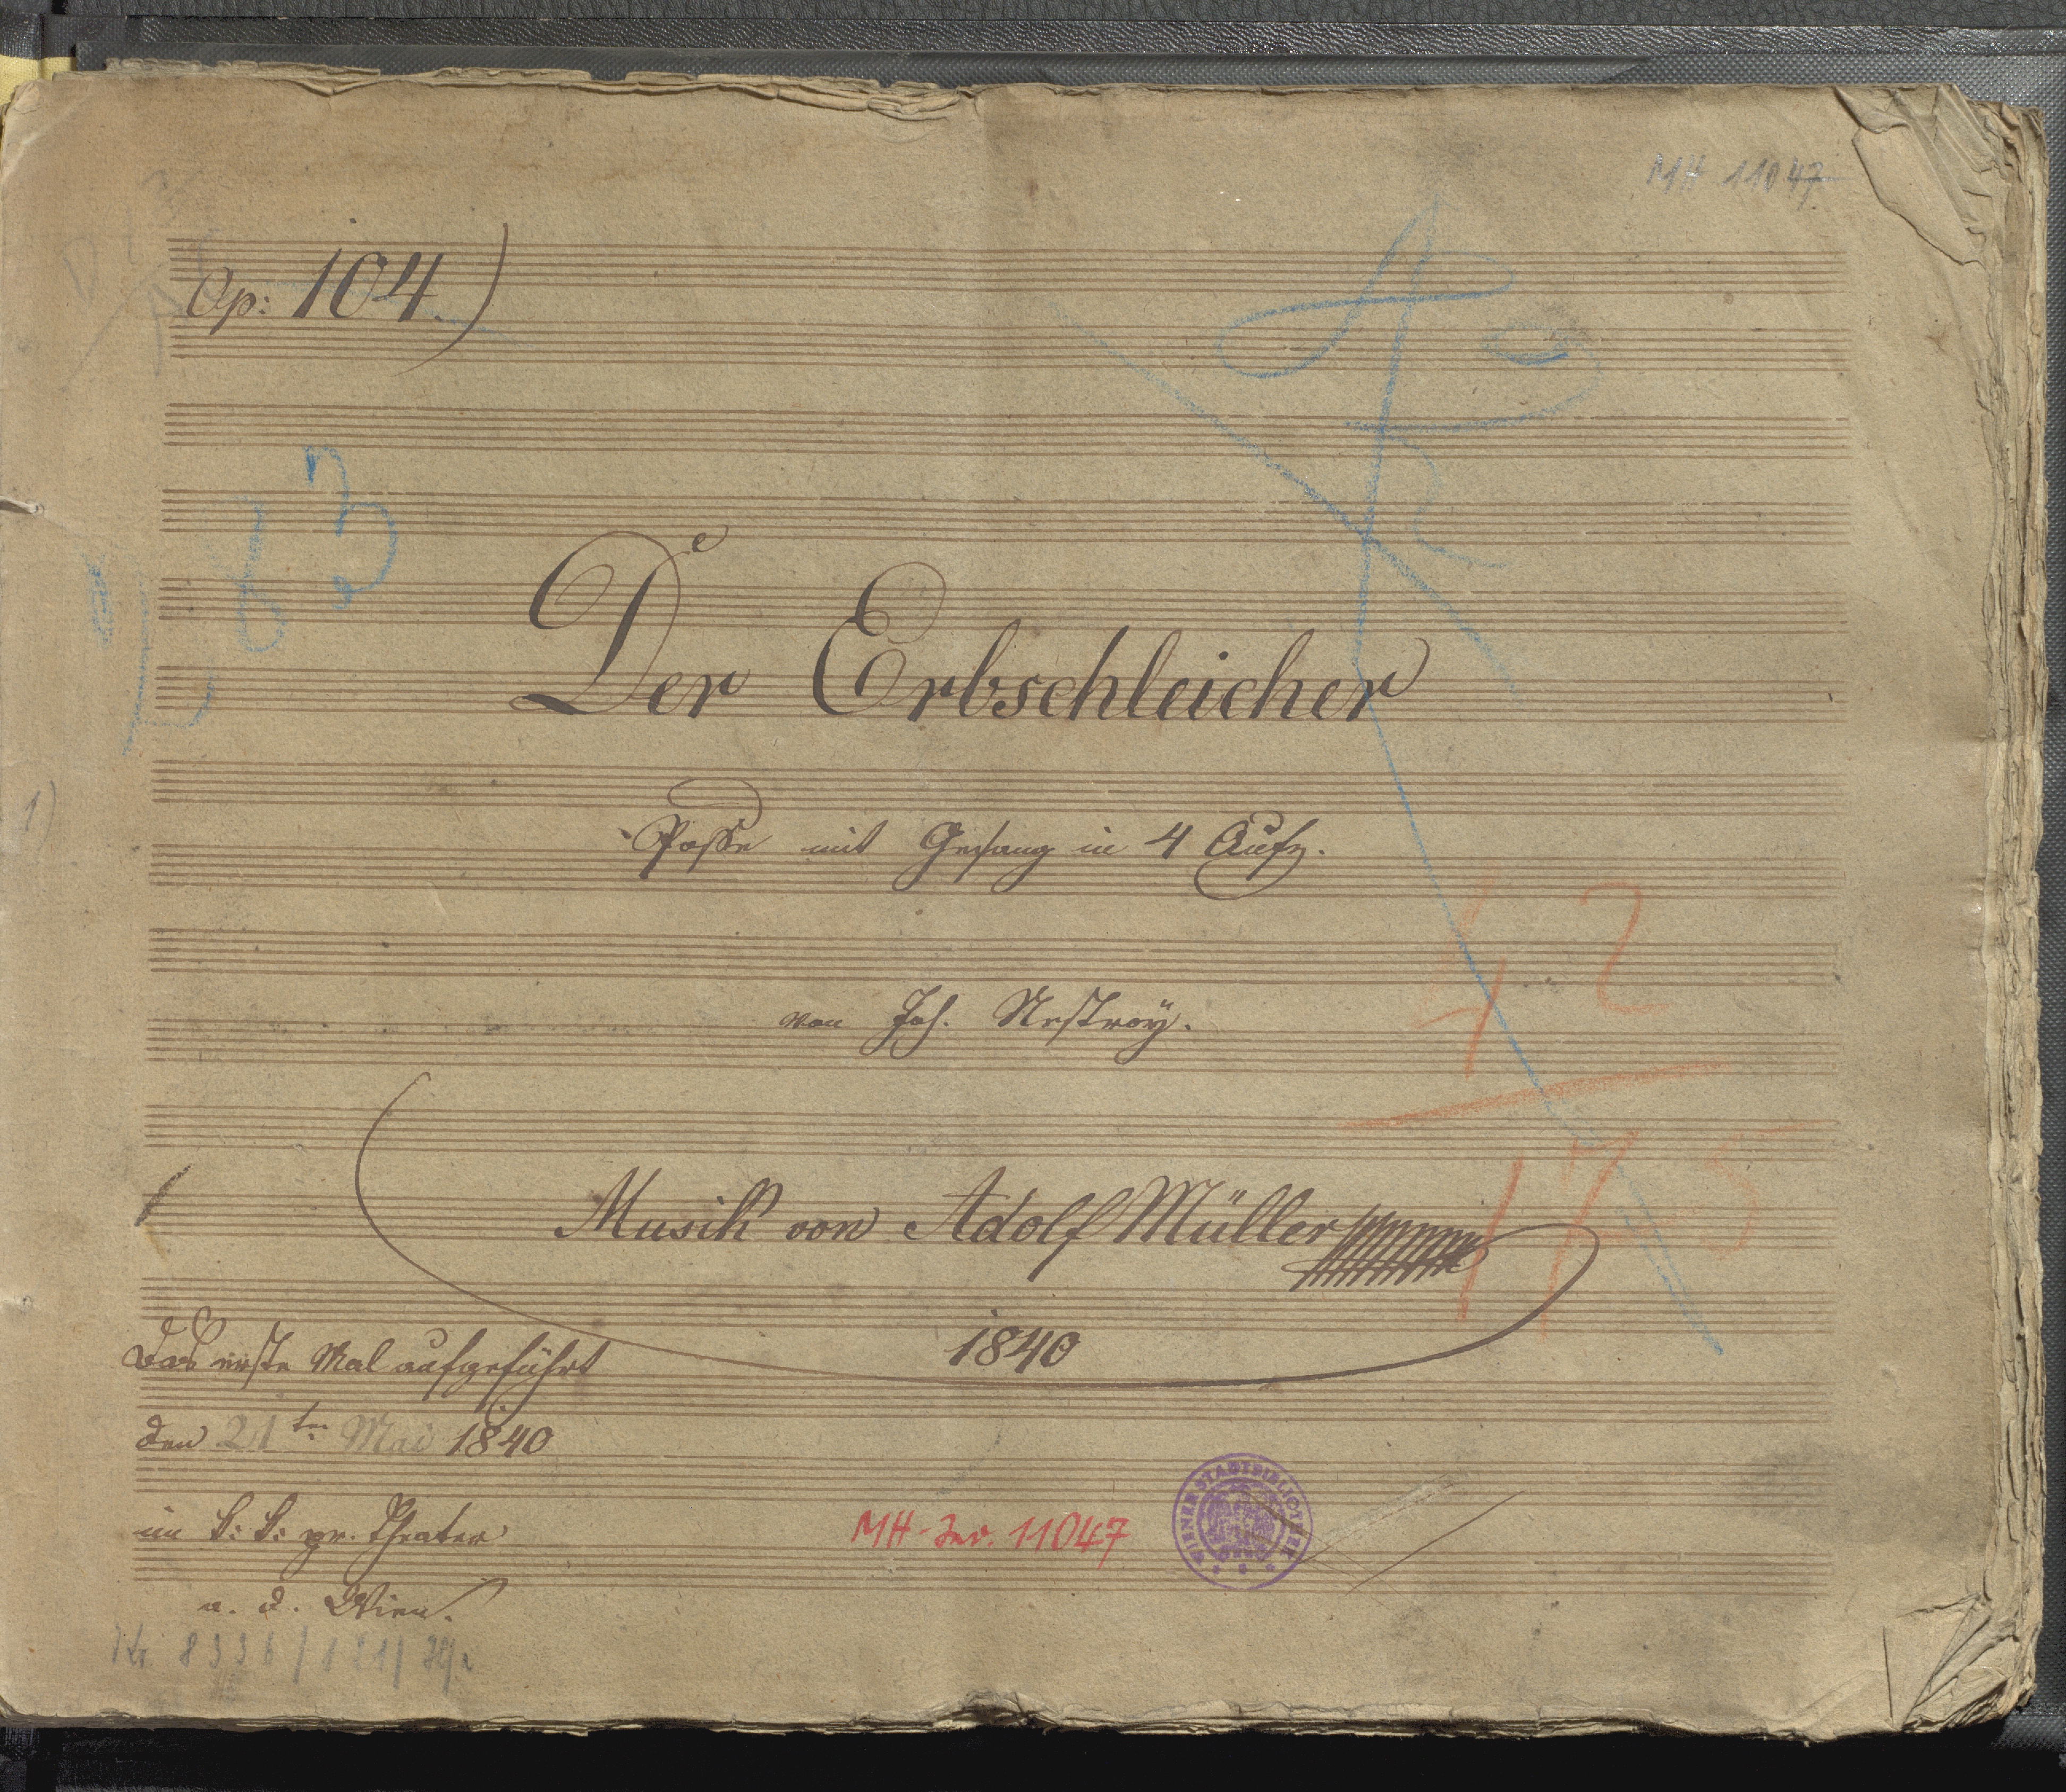 MH 11047
Op: 104.)
83
Der Erbschleicher
Posse mit Gesang in 4 Aufz.
1)
von Joh. Nestroy.
42
175
Musik von Adolf Müller
1840
Das erste Mal aufgeführt
den 21ten Mai 1840
im k: k: pr. Theater
a. d. Wien.
MH-Inv. 11047
WIENER STADTBIBLIOTHEK